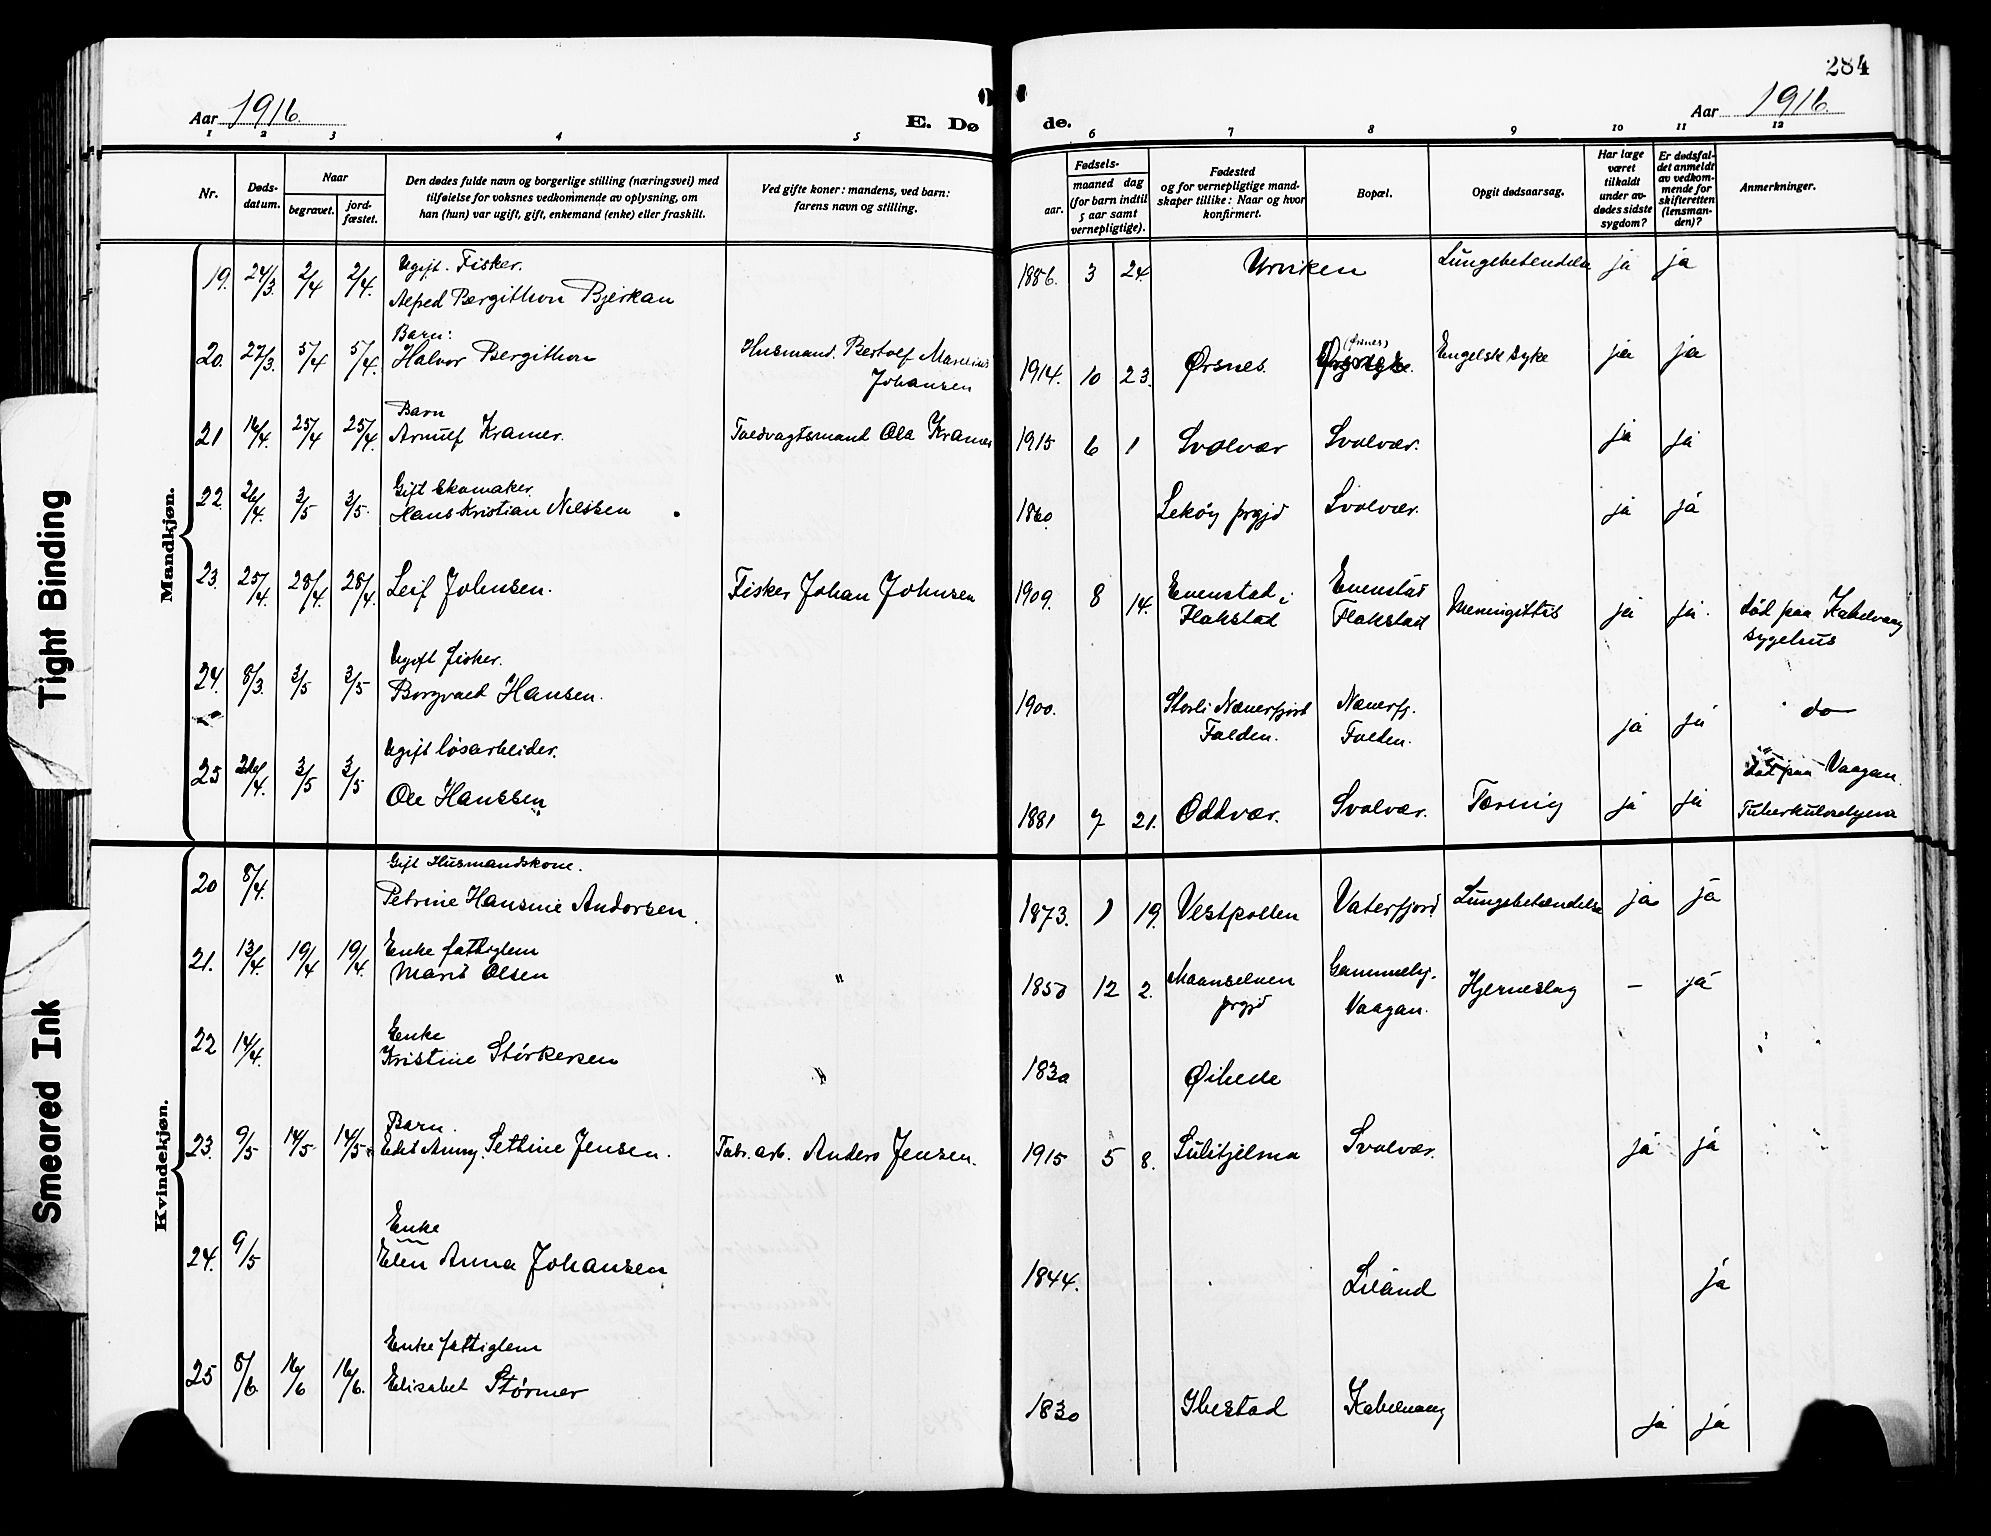 284
Aar 1916. E. Dø de. Aar 1916.
1 2 3 4 5 6 7 8 9 10 11 12
Nr.
Døds-
datum.
Naar
begravet.
jord-
fæstet.
Den dødes fulde navn og borgerlige stilling (næringsvei) med
tilføielse for voksnes vedkommende av oplysning, om
han (hun) var ugift, gift, enkemand (enke) eller fraskilt.
Ved gifte koner: mandens, ved barn:
farens navn og stilling.
Fødsels-
aar.
maaned dag
(for barn indtil
5 aar samt
vernepligtige).
Fødested
og for vernepligtige mand-
skaper tillike: Naar og hvor
konfirmert.
Bopæl.
Opgit dødsaarsag.
Har læge
været
tilkaldt
under av-
dødes sidste
sygdom?
Er dødsfal-
det anmeldt
av vedkom-
mende for
skifteretten
(lensman-
den)?
Anmerkninger.
Mandkjøn.
Ugift. Fisker.
19. 24/3. 2/4 2/4. Bergithon Bjerkan 1886. 3 24. Urviken Lungebetendelse ja ja
Barn:
20. 27/3. 5/4 5/4. Halvor Bergithon Husmand. Bertolf
Johansen 1914. 10 23. Ørsnes. (Ørsnes) Engelsk syke ja ja
Barn
21 16/4. 25/4 25/4. Arnulf Kramer. Toldvagtsmand Ole Kramer 1915 6 1 Svolvær Svolvær. ja ja
Gift Skomaker
22. 26/4. 3/5 3/5. Hans Kristian Nilssen 1860. prgjd Svolvær. ja ja
23. 25/4. 28/4. 28/4. Leif Johnsen. Fisker Johan Johnsen 1909. 8 14. Evenstad i
Flakstad Evenstad
Flakstad Meningittis ja ja. død paa Kabelvaag
sygehus
Ugift fisker.
24. 8/3. 3/5 3/5 Borgvald Hansen. 1900.
Folden.
Folden. ja ja do
Ugift løsarbeider.
25 26/4. 3/5 3/5 Ole Hanssen 1881 7 21. Oddvær. Svolvær. Tæring ja ja død paa Vaagan
Tuberkulosehjem
Kvindekjøn.
Gift Husmandskone.
20 8/4. Petrine Hansine Andorsen. 1873. 1 19. Vestpollen Vaterfjord Lungebetændelse ja ja
Enke fattiglem
21. 13/4. 19/4 19/4. Marit Olsen " 1850 12 2. Maanselven
prgjd
Vaagan. Hjerneslag – ja
Enke
22 14/4. Kristine Størkersen " 1830
Barn.
23. 9/5 14/5 14/5 Edit Anny Settine Jensen. Fabr. arb. Anders Jensen. 1915 5 8. Sulitjelma Svolvær. ja ja
Enke
24. 9/5 Elen Anna Johansen 1844. Liland ja
Enke fattiglem
25 8/6. 16/6 16/6. Elisabet Størmer 1830 Ibestad Kabelvaag ja ja
Tight Binding
Smeared Ink